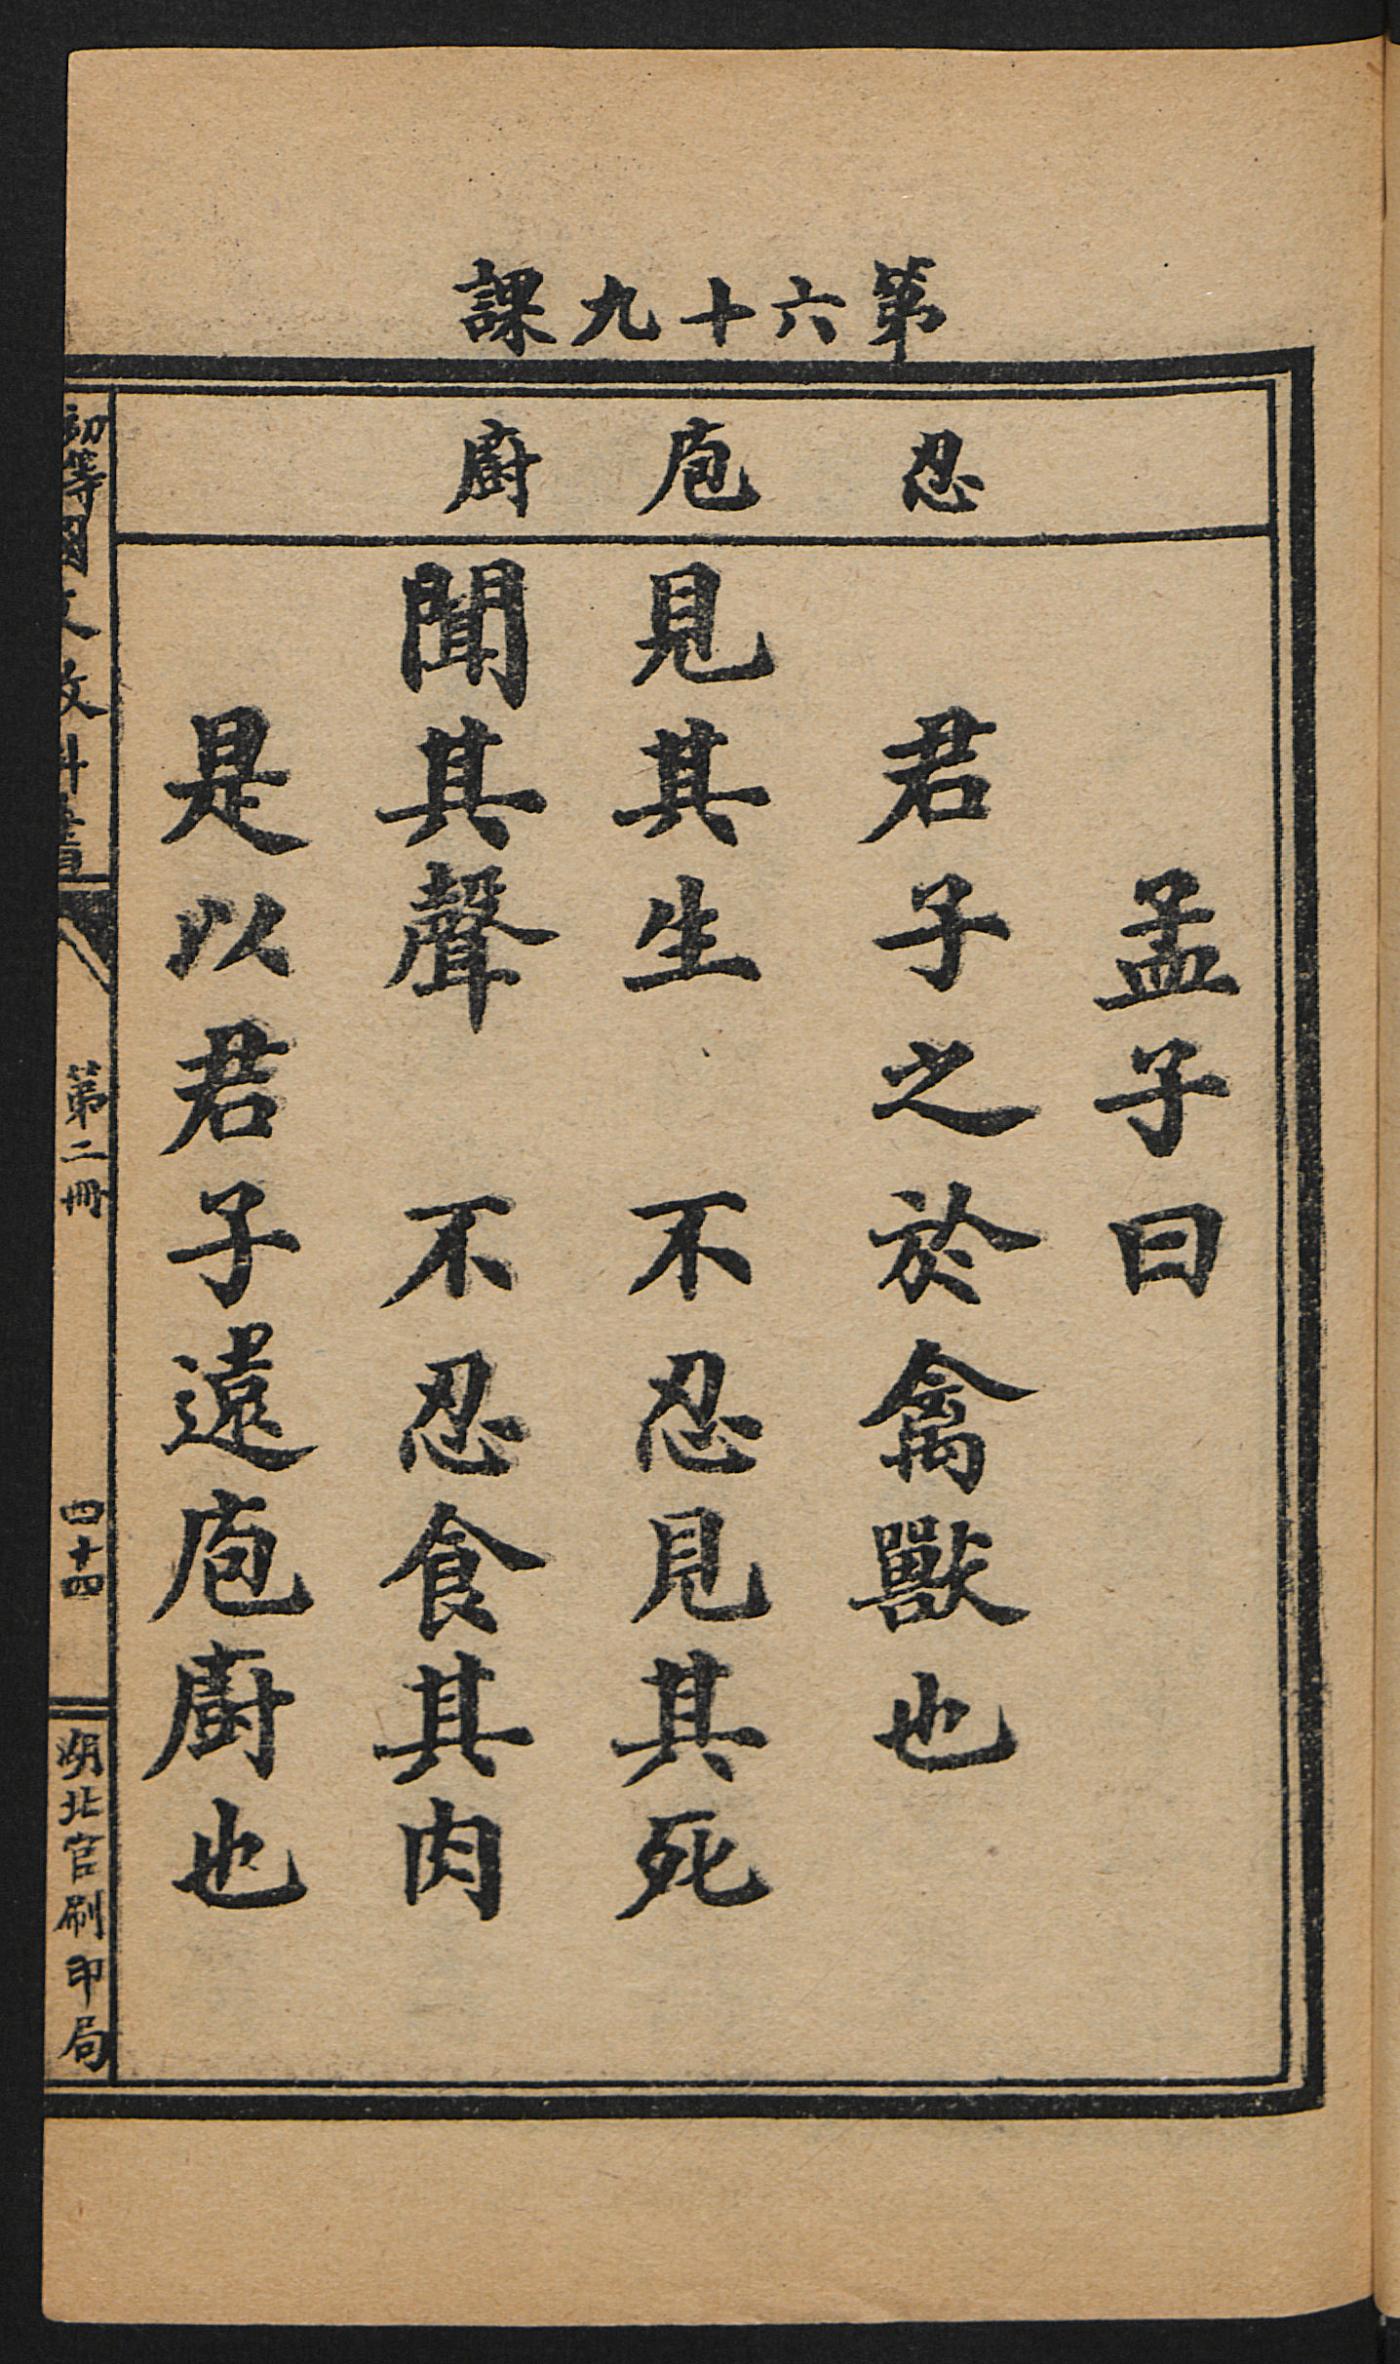 第六十九課
忍 庖 廚
孟子曰
君子之於禽獸也
見其生 不忍見其死
聞其聲 不忍食其肉
是以君子遠庖廚也
初等國文教科書 第二冊 四十四 湖北官刷印局